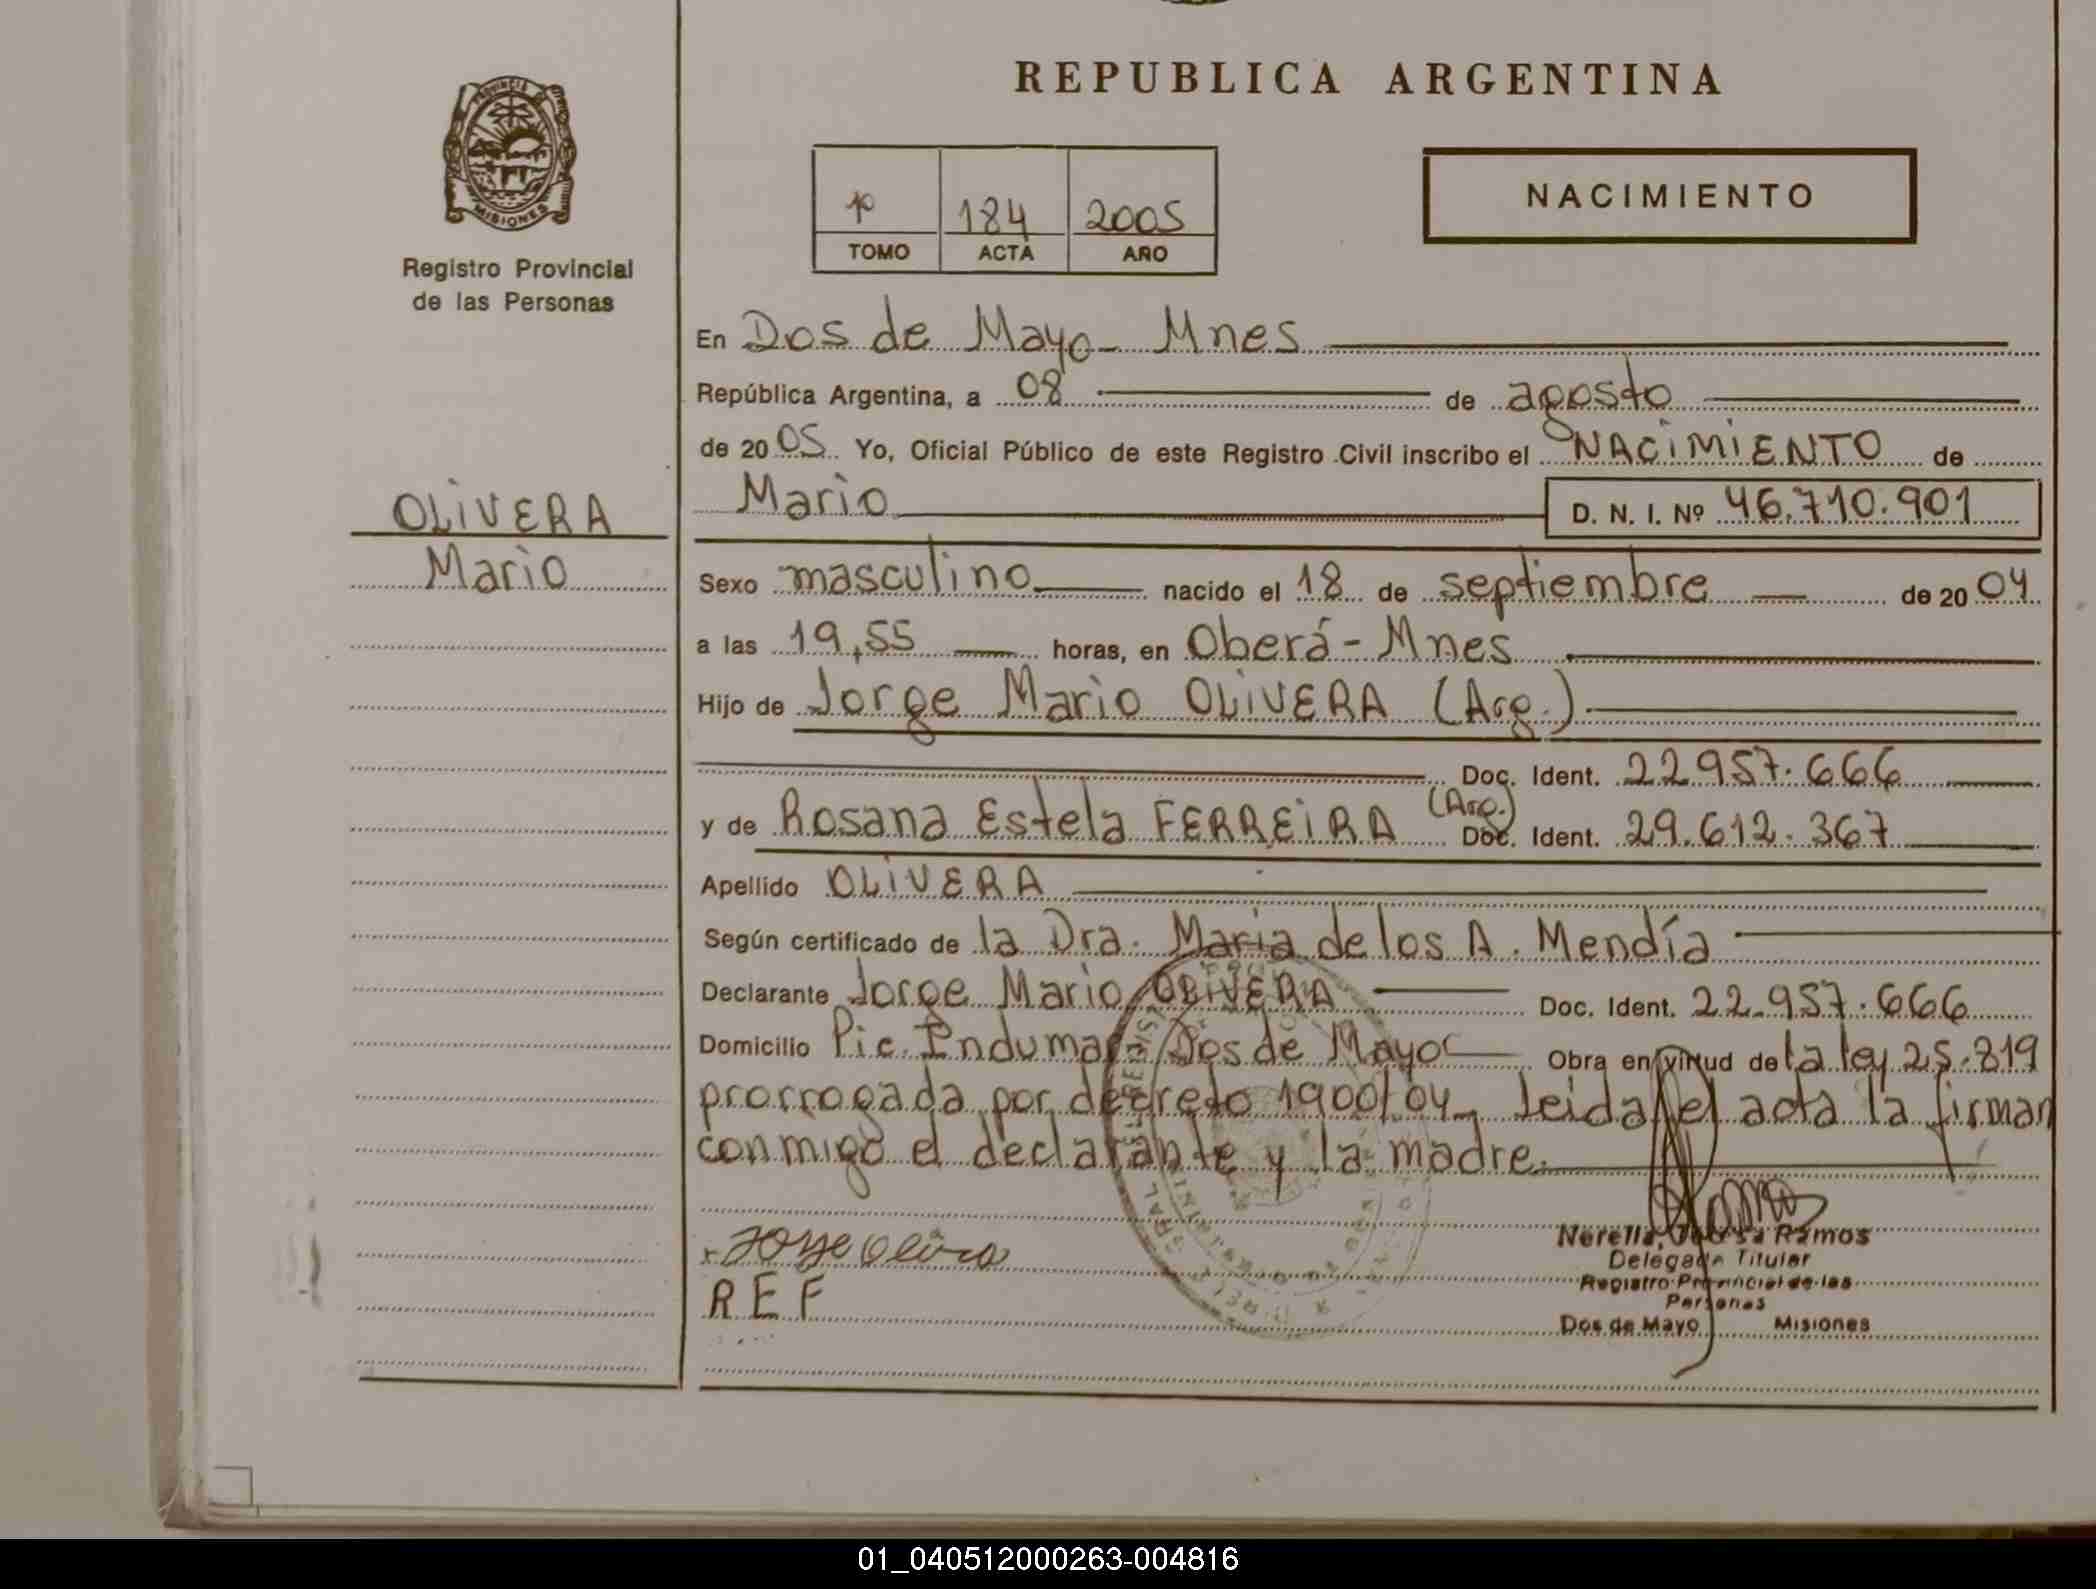 REPUBLICA ARGENTINA
PROVINCIA DE
MISIONES
Registro Provincial
de las Personas
1º 184 2005
TOMO ACTA AÑO
NACIMIENTO
En Dos de Mayo - Mnes
República Argentina, a 08 de agosto
de 2005 Yo, Oficial Público de este Registro Civil inscribo el NACIMIENTO de
Mario D. N. I. Nº 46.710.901
OLIVERA
Mario
Sexo masculino nacido el 18 de septiembre de 2004
a las 19,55 horas, en Oberá - Mnes
Hijo de Jorge Mario OLIVERA (Arg.)
Doc. Ident. 22.957.666
y de Rosana Estela FERREIRA (Arg.) Doc. Ident. 29.612.367
Apellido OLIVERA
Según certificado de la Dra. Maria de los A. Mendía
Declarante Jorge Mario OLIVERA Doc. Ident. 22.957.666
Domicilio Pic. Indumar Dos de Mayo Obra en virtud de la ley 25.819
prorrogada por decreto 1900/04 - Leida el acta la firman
conmigo el declarante y la madre.
x Jorge Olivera
R E F
Nerella, Ramos
Delegada Titular
Registro Provincial de las
Personas
Dos de Mayo Misiones
01_040512000263-004816